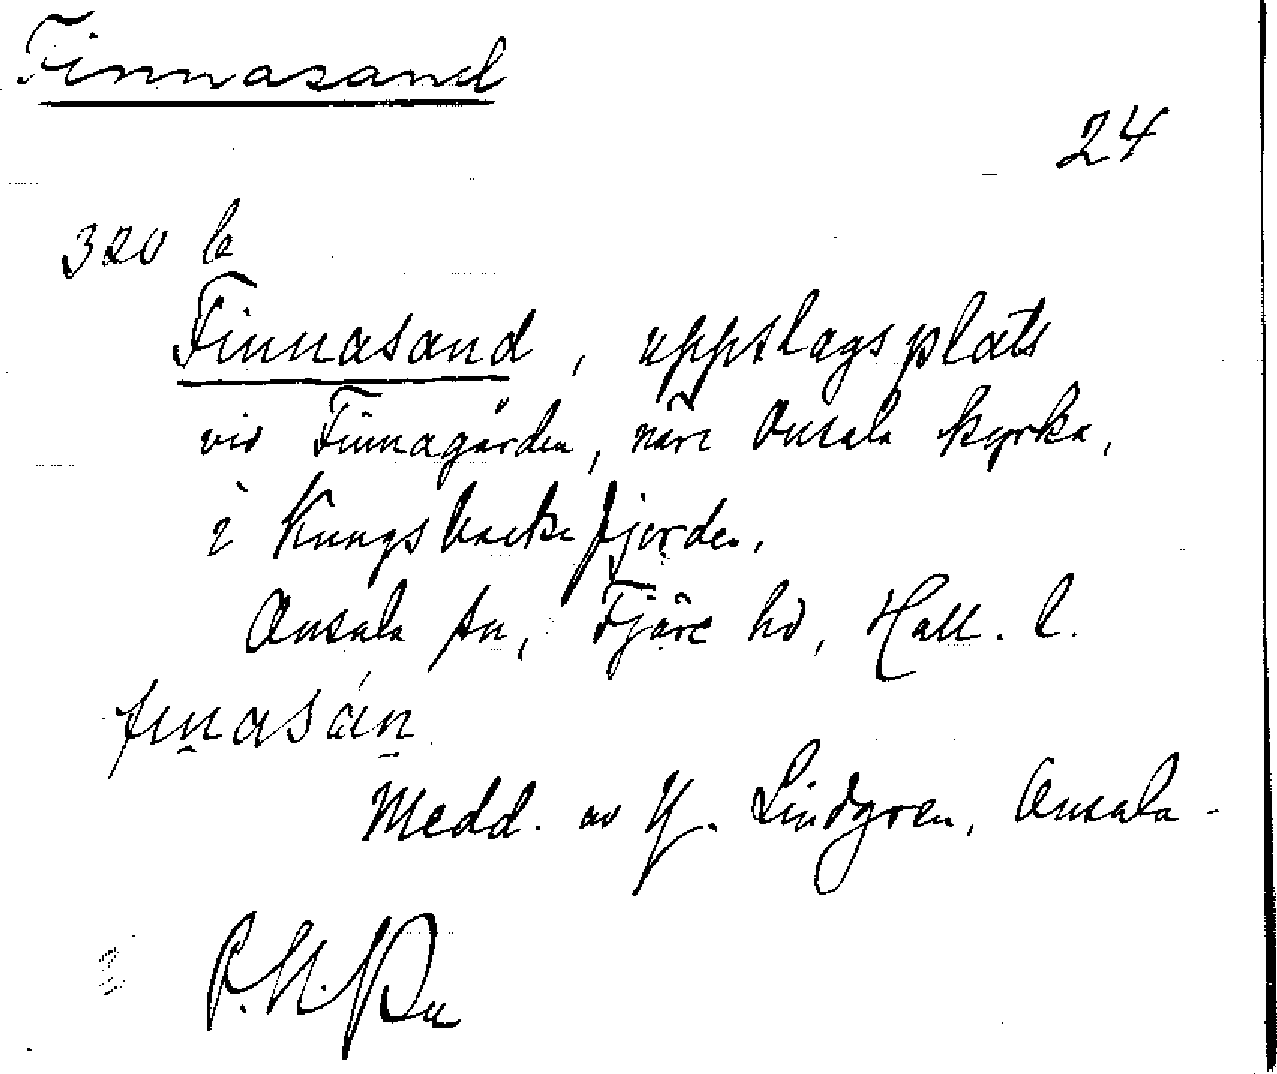 Finnasand
24
320 b
Finnasand, uppslagsplats
vid Finnagården, nära Onsala kyrka,
i Kungsbackafjorden.
Onsala sn, Fjäre hd, Hall. l.
Medd. av Y. Lindgren, Onsala.